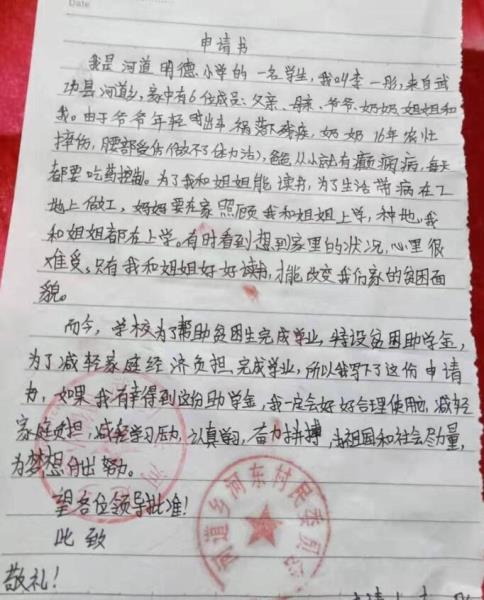 Date
申请书
我是河道明德小学的一名学生,我叫李一彤,来自武
功县河道乡,家中有6位成员:父亲、母亲、爷爷、奶奶姐姐和
我。由于爷爷年轻时出车祸落下残疾,奶奶16年农灶
摔伤,腰部受伤(做不了体力活),爸爸从小就有癫痫病,每天
都要吃药控制。为了我和姐姐能读书,为了生活带病在工
地上做工,妈妈要在家照顾我和姐姐上学,种地,我
和姐姐都在上学。有时看到想到家里的状况,心里很
难受。只有我和姐姐好好读书,才能改变我们家的贫困面
貌。
而今,学校为了帮助贫困生完成学业,特设贫困助学金,
为了减轻家庭经济负担,完成学业,所以我写下了这份申请
书,如果我有幸得到这份助学金,我一定会好好合理使用,减轻
家庭负担,减轻学习压力,认真学习,奋力拼搏,为祖国和社会尽力量,
为梦想付出努力。
望各位领导批准!
此致
敬礼!
河道乡河东村民委员会